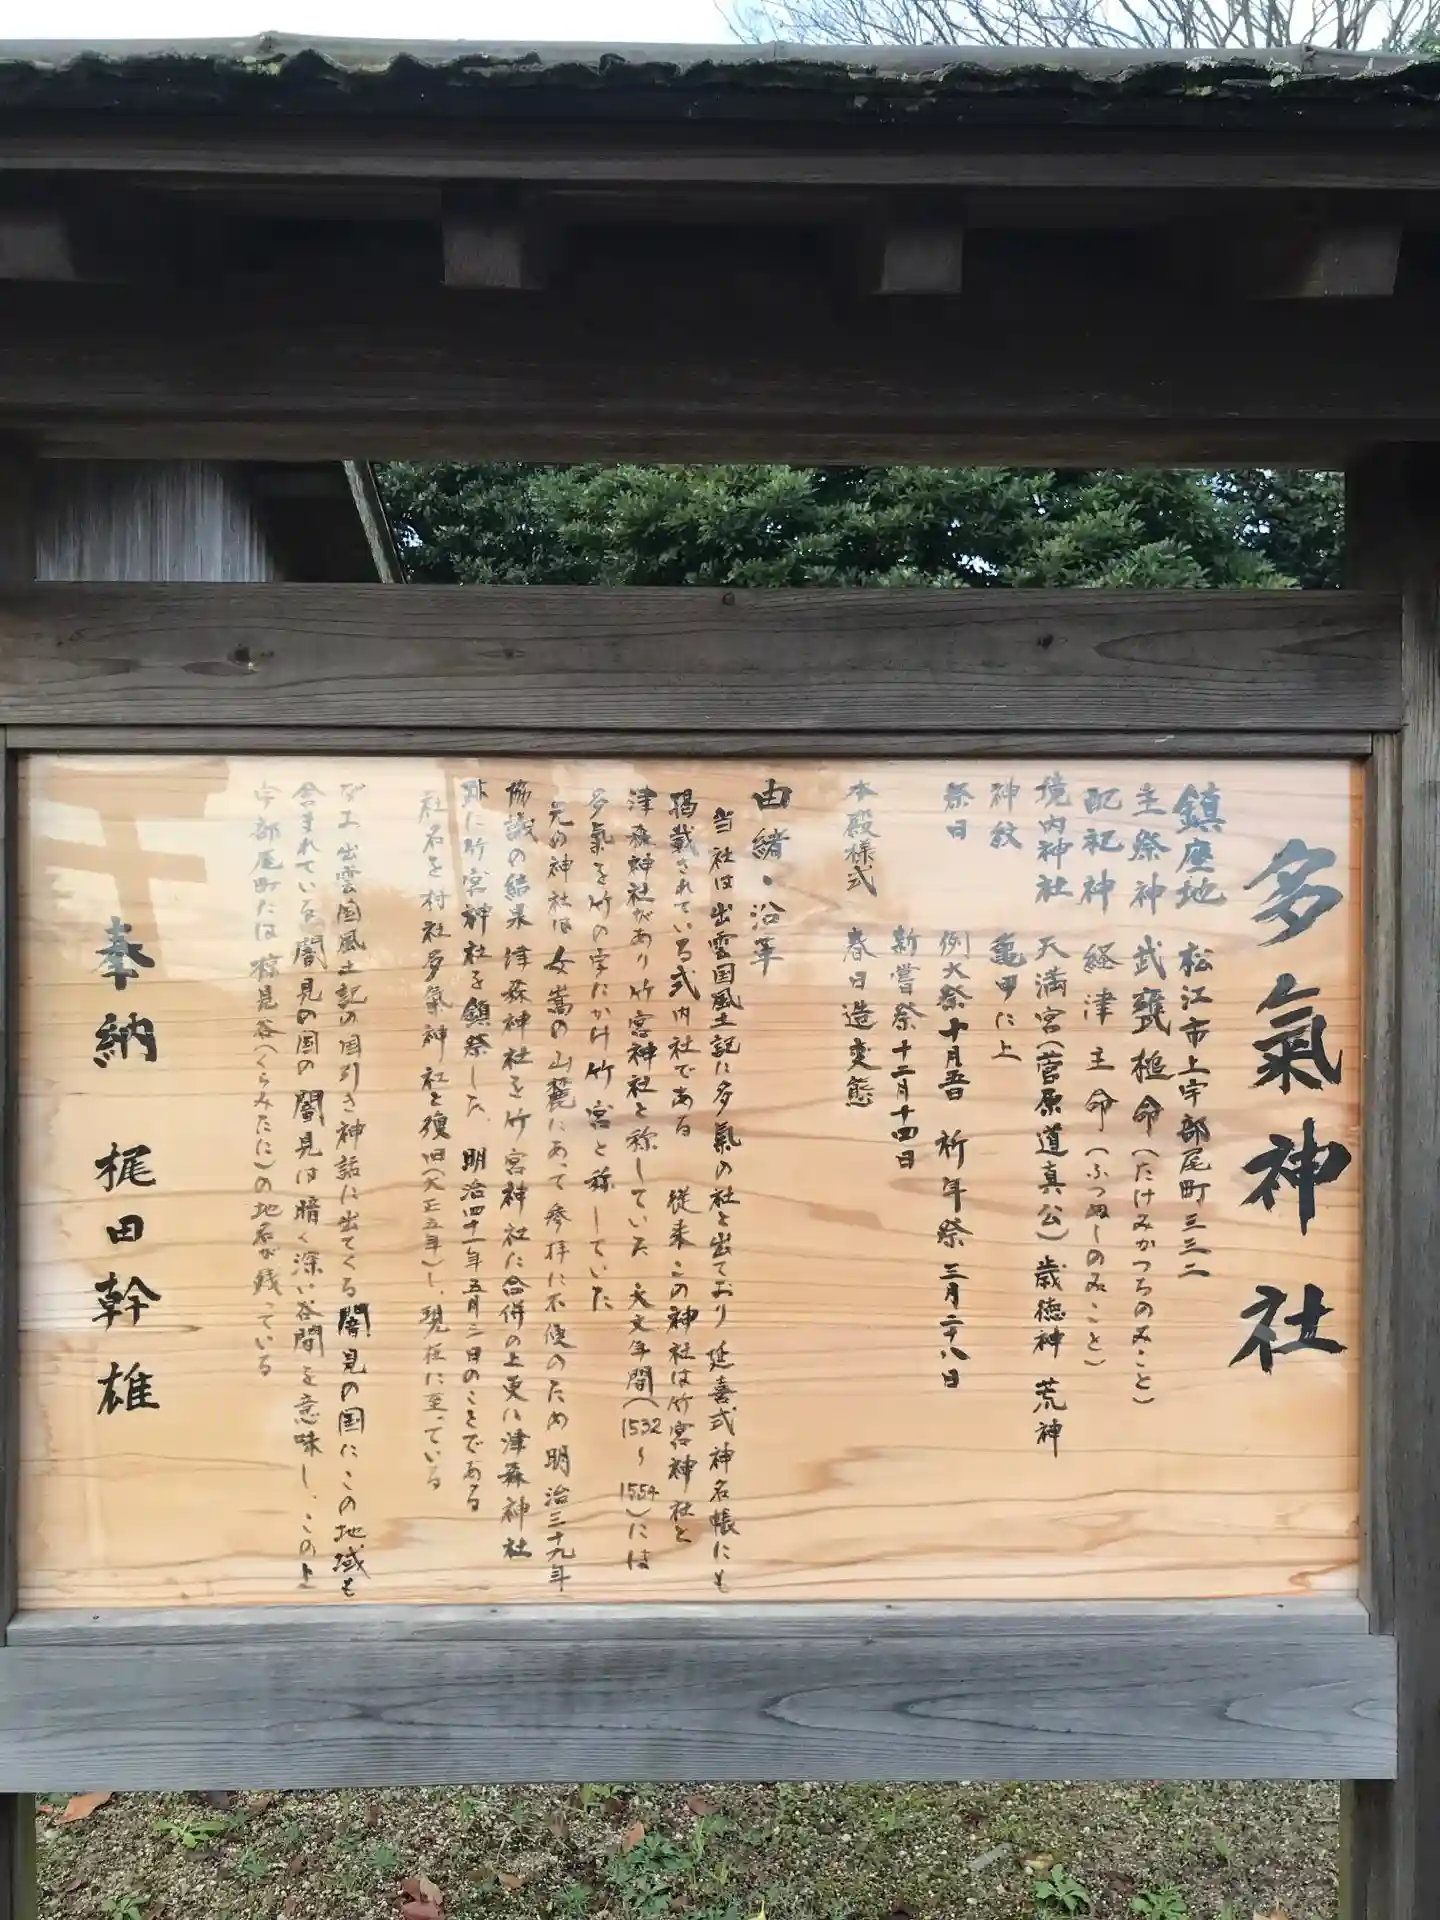 多氣神社
鎮座地 松江市上宇部尾町三三二
主祭神 武甕槌命(たけみかつちのみこと)
配祀神 経津主命(ふつぬしのみこと)
境内神社 天満宮(菅原道真公)歳徳神 荒神
神紋 亀甲に上
祭日 例大祭十月五日 祈年祭 三月二十八日
新嘗祭十二月十四日
本殿様式 春日造変態
由緒・沿革
当社は出雲国風土記に多氣の社と出ており 延喜式神名帳にも
掲載されている式内社である 従来この神社は竹宮神社と
津森神社があり竹宮神社と称していた 天文年間(1532～1554)には
多氣を竹の字たかけ竹宮と称していた
元の神社は女嵩の山麓にあって参拝に不便のため明治三十九年
協議の結果津森神社を竹宮神社に合併の上更に津森神社
跡に竹宮神社を鎮祭した、明治四十一年五月三日のことである
社名を村社多氣神社と復旧(大正五年)し、現在に至っている
なお出雲国風土記の国引き神話に出てくる闇見の国にこの地域も
含まれている闇見の国の闇見は暗く深い谷間を意味し、この上
宇部尾町には椋見谷(くらみたに)の地名が残っている
奉納 梶田幹雄